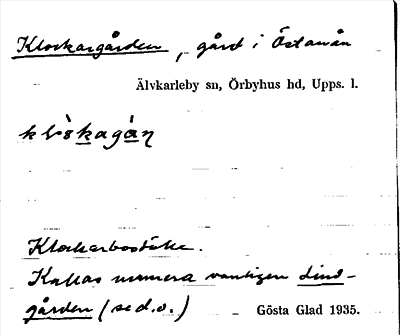 Klockargården, gård i Östanån
Älvkarleby sn, Örbyhus hd, Upps. l.
Klockarboställe.
Kallas numera vanligen Lind-
gården (se d.o.)
Gösta Glad 1935.